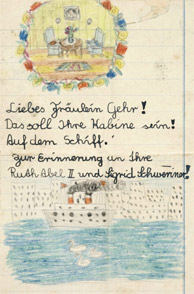 Liebes Fräulein Gehr!
Das soll Ihre Kabine sein!
Auf dem Schiff.
zur Erinnerung an Ihre
Ruth Abel II und Sigrid Schweriner!